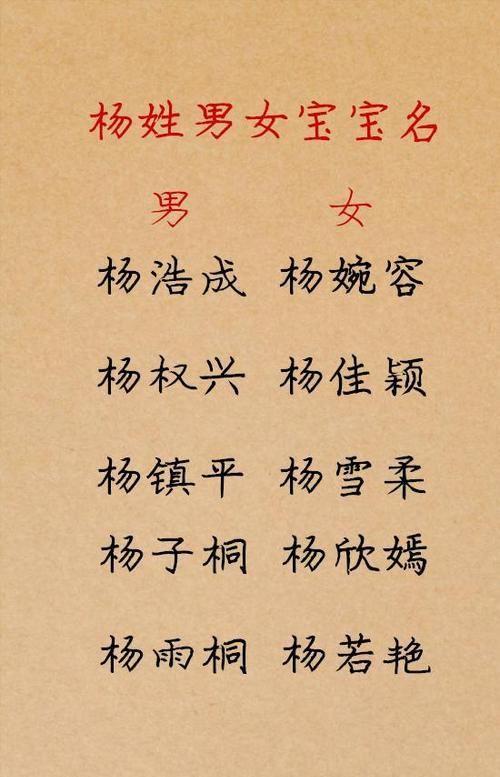 杨姓男女宝宝名
男 女
杨浩成 杨婉容
杨权兴 杨佳颖
杨镇平 杨雪柔
杨子桐 杨欣嫣
杨雨桐 杨若艳